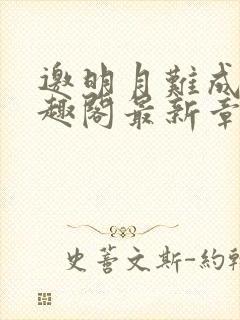 邀明月難成
趣閣最新章
史蒂文斯-約翰